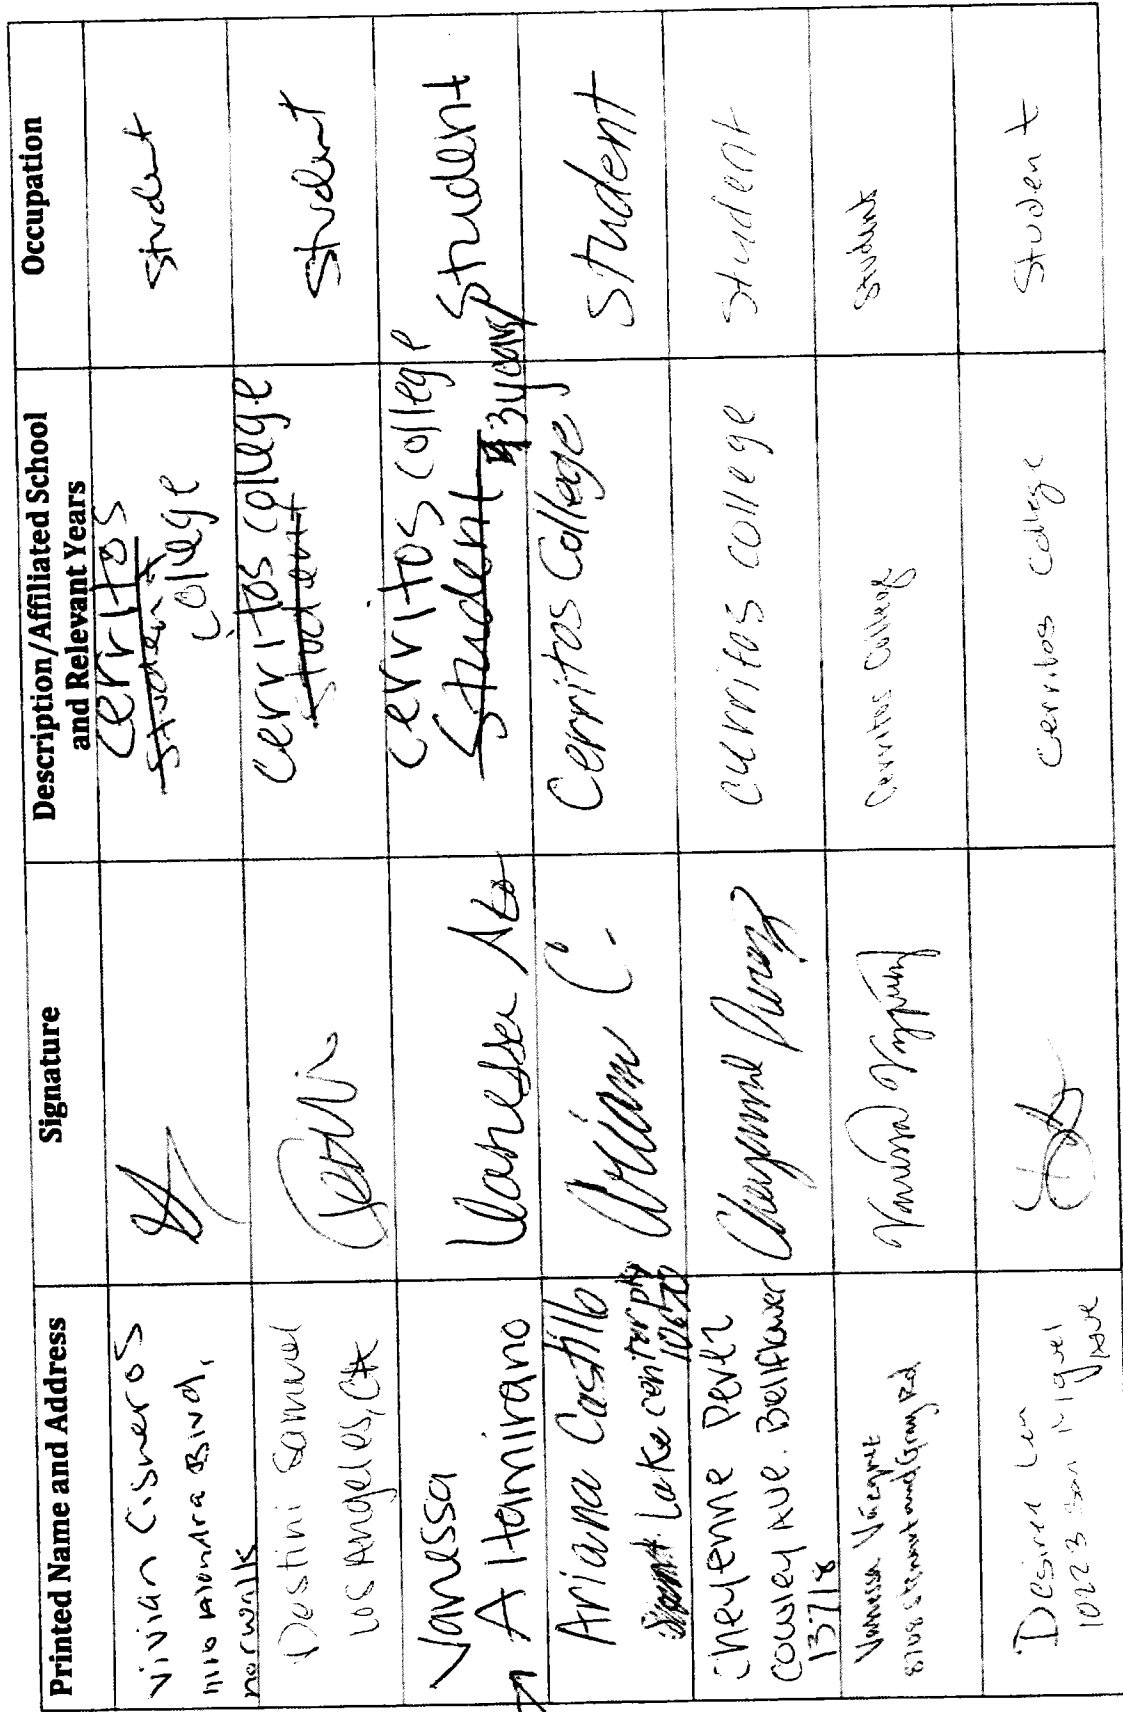 Printed Name and Address
Signature
Description/Affiliated School
and Relevant Years
Occupation
Vivian Cisneros
norwalk
Cerritos
Student
College
Student
Destini Samuel
Los Angeles, CA
Cerritos College
Student
Student
Vanessa
Altamirano
Vanessa
Cerritos College
Student
3 years
Student
Ariana Castillo
Lake center pk
Ariana C.
Cerritos College
Student
Cheyenne Perez
Cowley Ave. Bellflower
13718
Cheyenne Perez
Cerritos College
Student
Vanessa
Vanessa
Cerritos College
Student
Desiree
10223 San Miguel
Ave
Cerritos College
Student